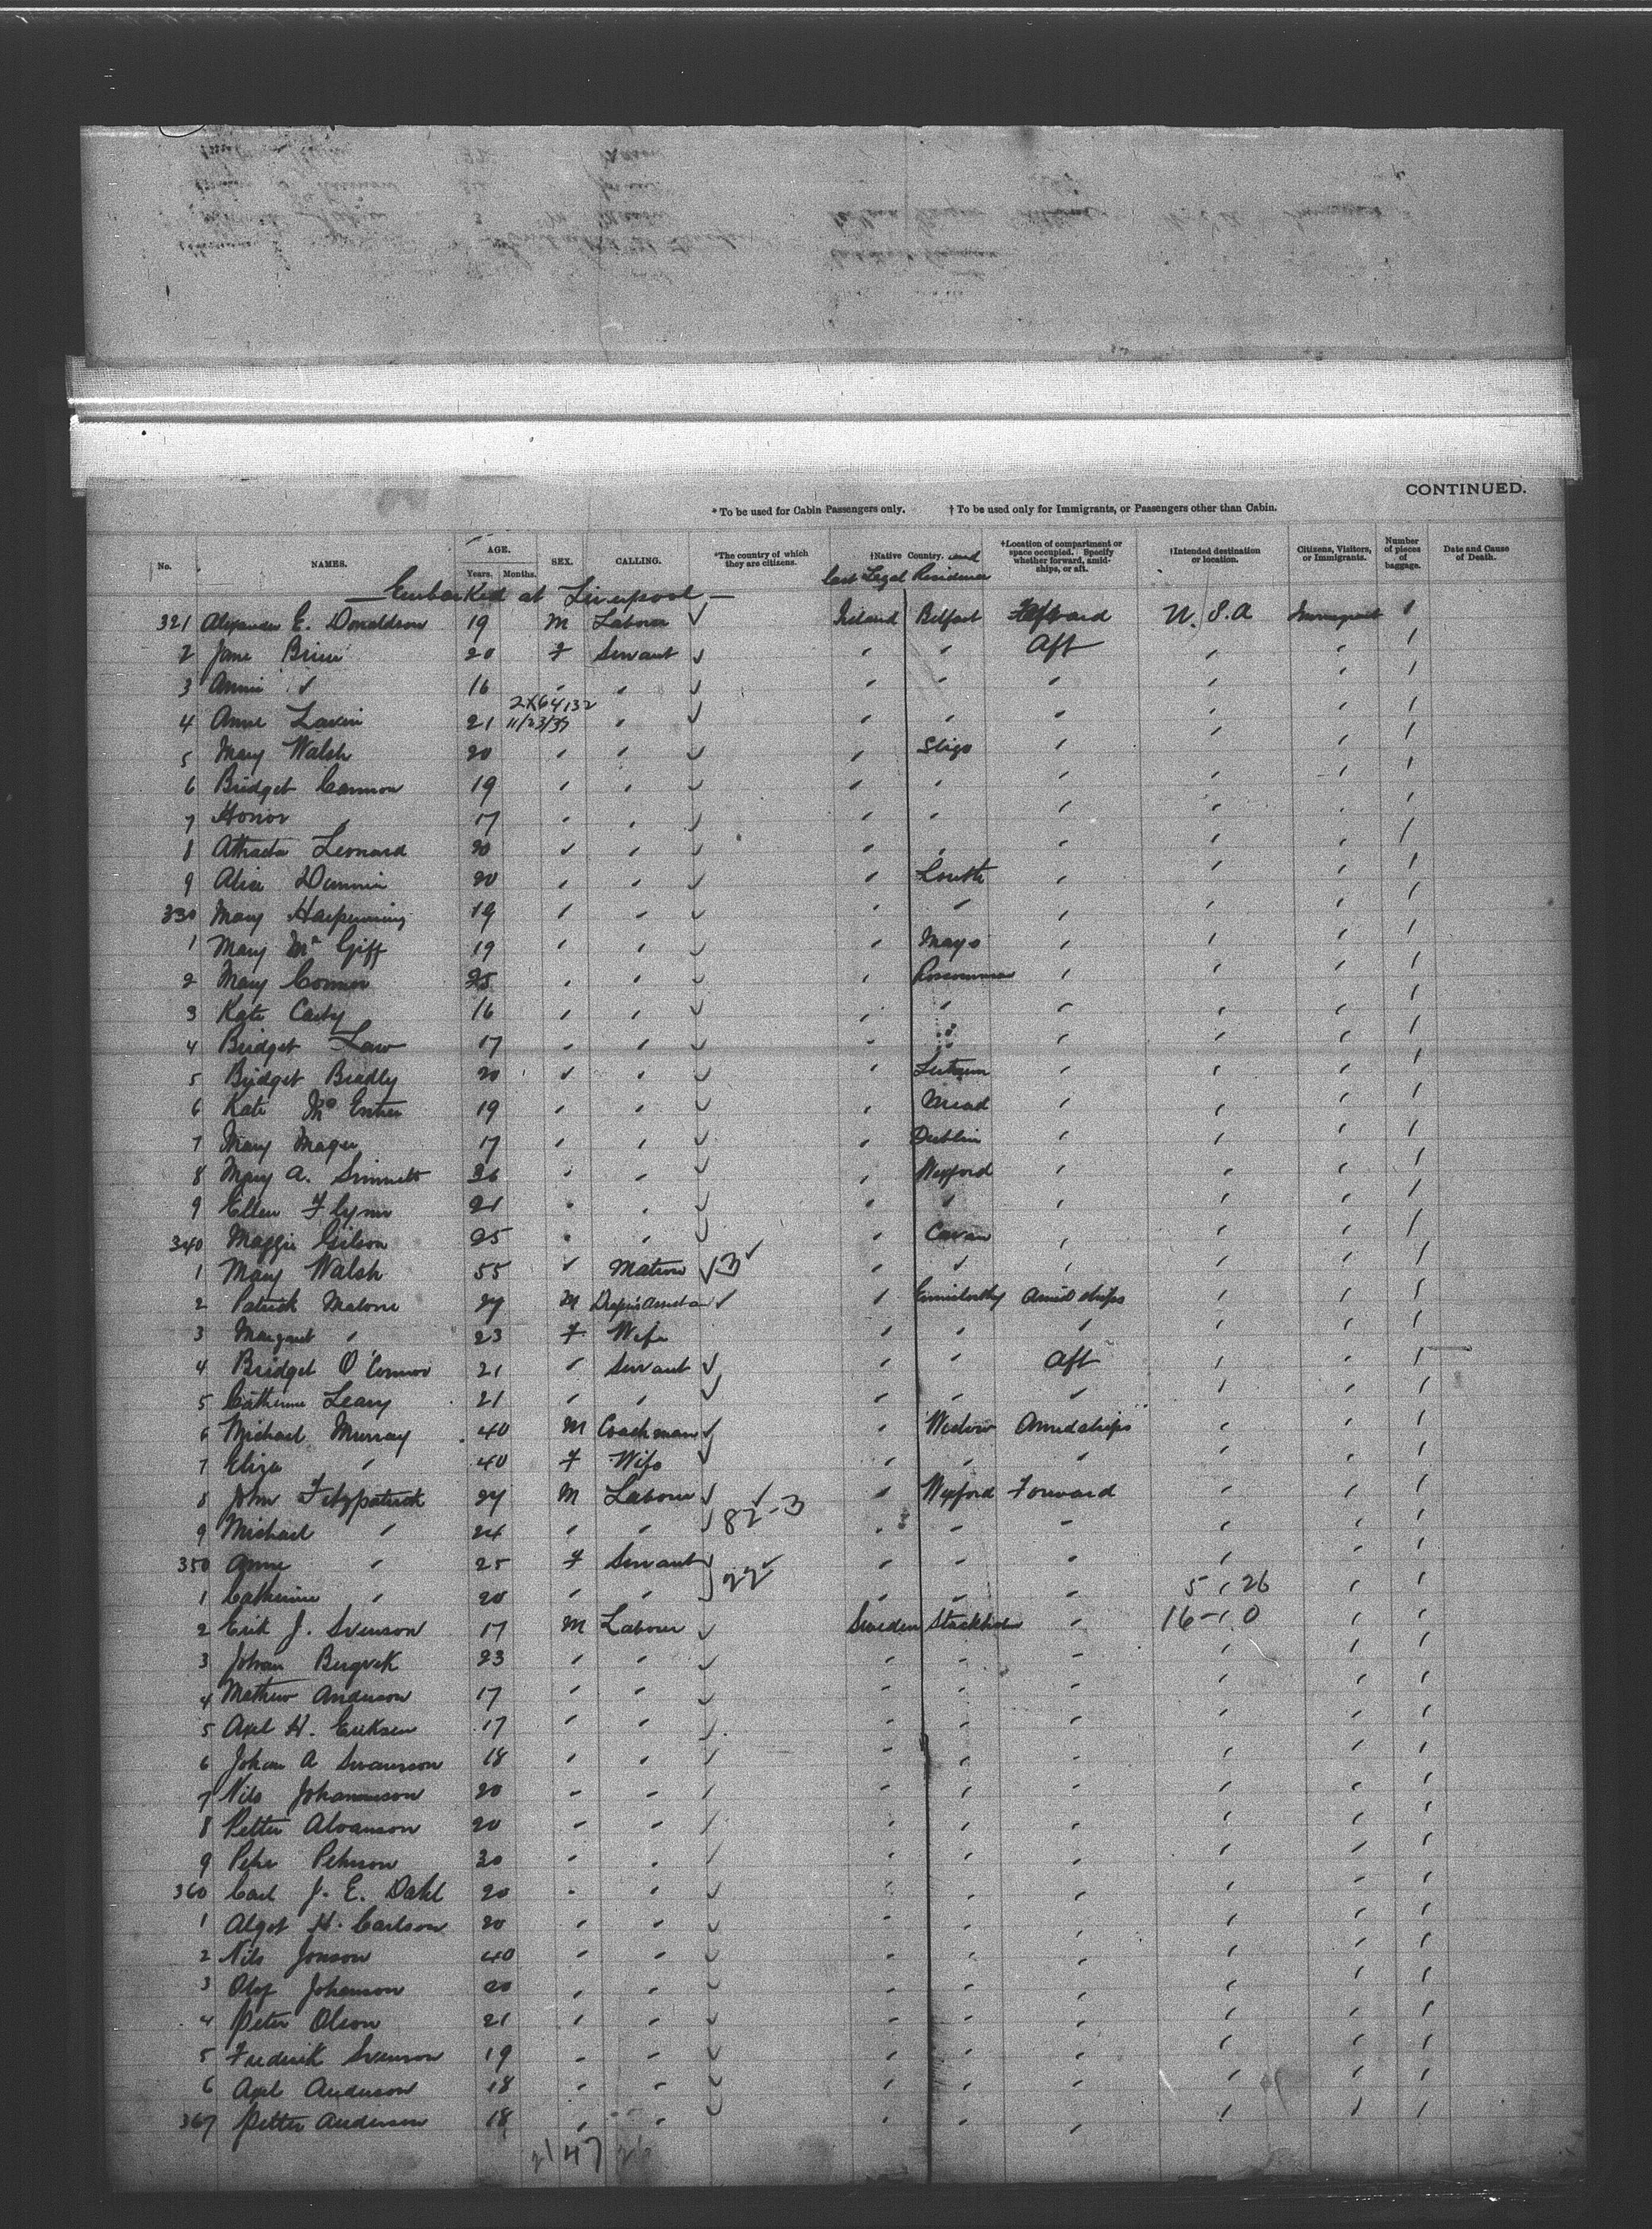 CONTINUED.
* To be used for Cabin Passengers only. † To be used only for Immigrants, or Passengers other than Cabin.
No. NAMES. AGE. Years. Months. SEX. CALLING. *The country of which they are citizens. †Native Country. and last Legal Residence †Location of compartment or space occupied. Specify whether forward, amidships, or aft. †Intended destination or location. Citizens, Visitors, or Immigrants. Number of pieces of baggage. Date and Cause of Death.
— Embarked at Liverpool —
321 Alexander E. Donaldson 19 M Labourer ✓ Ireland Belfast U.S.A Immigrant 1
2 Jane 20 F Servant ✓ " " Aft " " 1
3 Annie " 16 " " ✓ " " " " " 1
2X64132
4 Anne Lavin 21 11/23/37 " ✓ " " " " " 1
5 Mary Walsh 20 " " ✓ " Sligo " " " 1
6 Bridget Cannon 19 " " ✓ " " " " " 1
7 Honor " 17 " " ✓ " " " " " 1
8 Attracta Leonard 20 " " ✓ " " " " " 1
9 Alice 20 " " ✓ " Louth " " " 1
330 Mary 19 " " ✓ " " " " " 1
1 Mary Mc Giff 19 " " ✓ " Mayo " " " 1
2 Mary Connor 25 " " ✓ " Roscommon " " " 1
3 Kate Casty 16 " " ✓ " " " " " 1
4 Bridget Law 17 " " ✓ " " " " " 1
5 Bridget Bradly 20 " " ✓ " Leitrim " " " 1
6 Kate Mc Entee 19 " " ✓ " Mead " " " 1
7 Mary Magee 17 " " ✓ " Dublin " " " 1
8 Mary A. Sinnett 36 " " ✓ " Wexford " " " 1
9 Ellen Flynn 21 " " ✓ " " " " " 1
340 Maggie Gilson 25 " " ✓ " Cavan " " " 1
1 Mary Walsh 55 " Matron ✓ 3 ✓ " " " " " 1
2 Patrick Malone 27 M Draper's Assistan ✓ " Enniscorthy Amidships " " 1
3 Margaret " 23 F Wife " " " " " 1
4 Bridget O'Connor 21 " Servant ✓ " " Aft " " 1
5 Catherine Leary 21 " " ✓ " " " " " 1
6 Michael Murray 40 M Coachman ✓ " Wicklow Amidships " " 1
7 Eliza " 40 F Wife ✓ " " " " " 1
8 John Fitzpatrick 27 M Labourer ✓ ✓ " Wexford Forward " " 1
9 Michael " 24 " " ✓ 82-3 " " " " " 1
350 Anne " 25 F Servant ✓ " " " " " 1
1 Catherine " 20 " " 22 ✓ " " " 5 " 26 " 1
2 Erik J. Svenson 17 M Labourer ✓ Sweden Stockholm " 16-1 0 " 1
3 Johan Bergvek 23 " " ✓ " " " " " 1
4 Mathew Anderson 17 " " ✓ " " " " " 1
5 Axel H. Eriksen 17 " " ✓ " " " " " 1
6 Johan A Swanson 18 " " ✓ " " " " " 1
7 Nils Johannson 20 " " ✓ " " " " " 1
8 Petter Alvanson 20 " " ✓ " " " " " 1
9 Peter Peterson 30 " " ✓ " " " " " 1
360 Carl J. E. Dahl 20 " " ✓ " " " " " 1
1 Algot H. Carlson 20 " " ✓ " " " " " 1
2 Nils Jonson 40 " " ✓ " " " " " 1
3 Olof Johanson 20 " " ✓ " " " " " 1
4 Peter Olson 21 " " ✓ " " " " " 1
5 Frederik Svenson 19 " " ✓ " " " " " 1
6 Axel Anderson 18 " " ✓ " " " " " 1
367 Petter Anderson 18 " " ✓ " " " " " 1
21 47 26